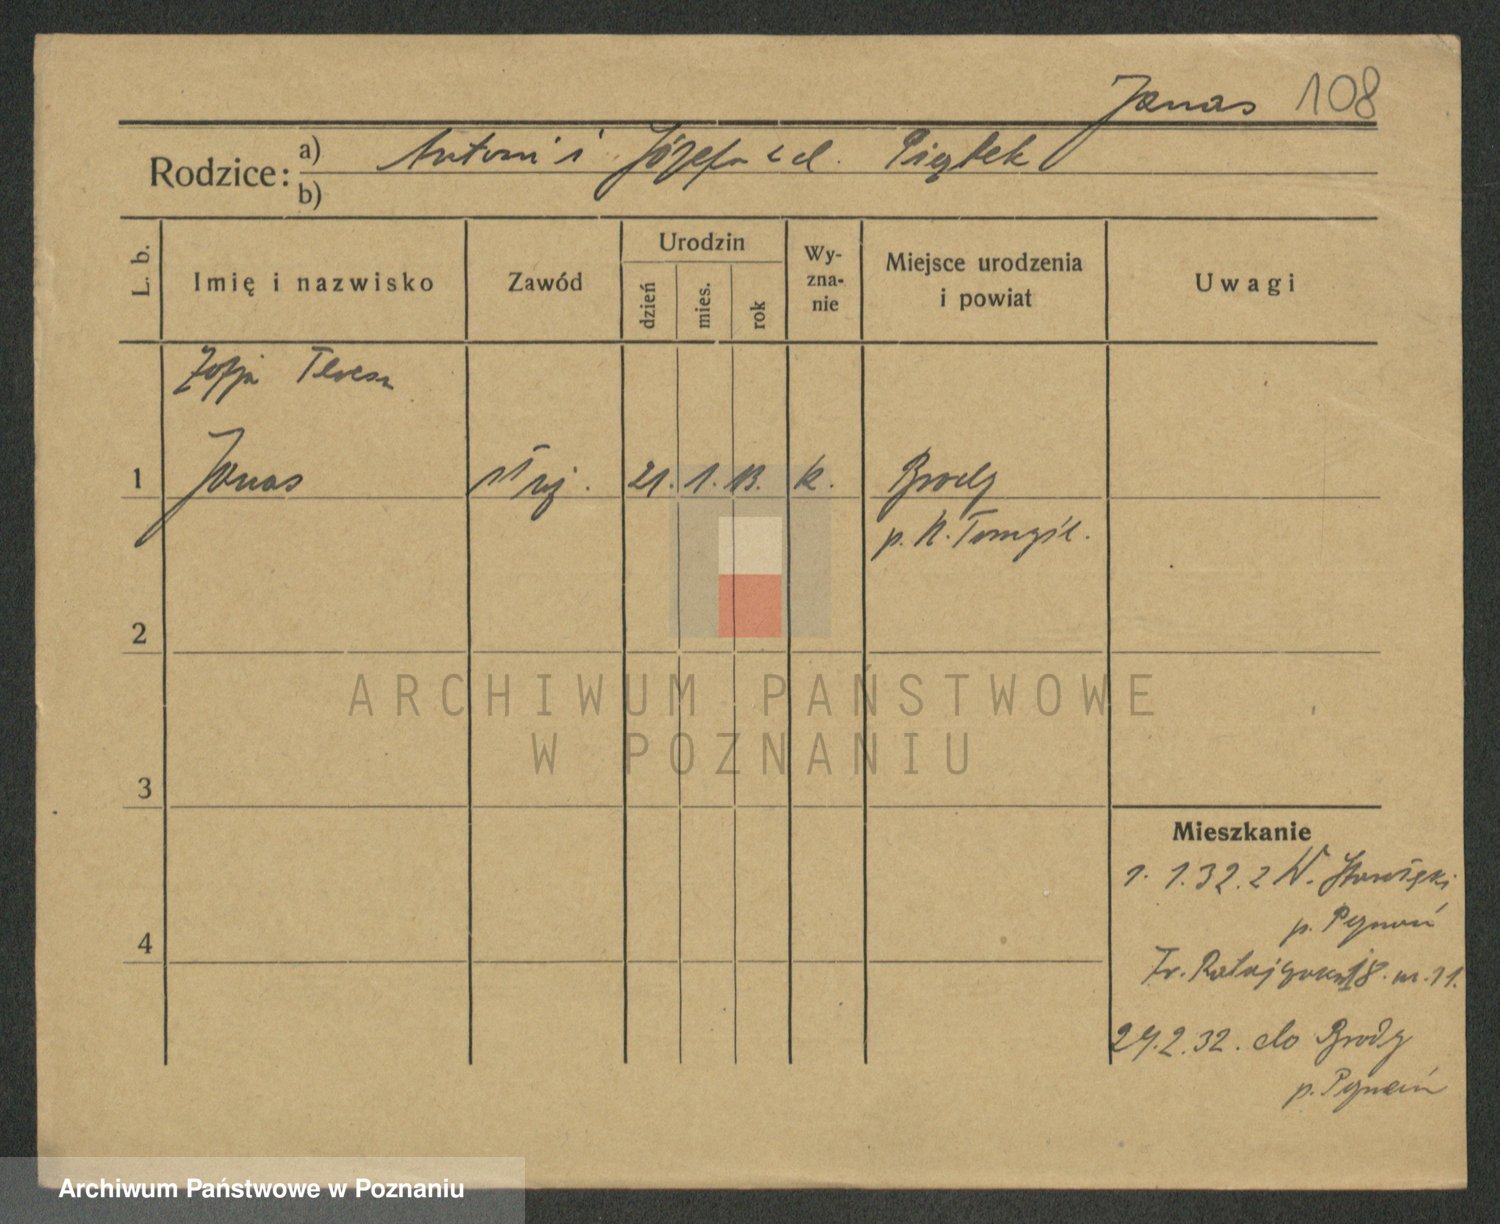 Jonas 108
Rodzice:
a) Antoni i Józefa z d. Piątek
b)
L. b.
Imię i nazwisko
Zawód
Urodzin
dzień
mies.
rok
Wy-
zna-
nie
Miejsce urodzenia
i powiat
Uwagi
Zofja Teresa
1 Jonas służ. 21. 1. 13. k. Brody
p. N. Tomyśl.
2
3
4
ARCHIWUM PAŃSTWOWE
W POZNANIU
Mieszkanie
1. 1.32. z W.
p. Poznań
Fr. Ratajczaka 18. m. 11.
29.2.32. do Brody
p. Poznań
Archiwum Państwowe w Poznaniu